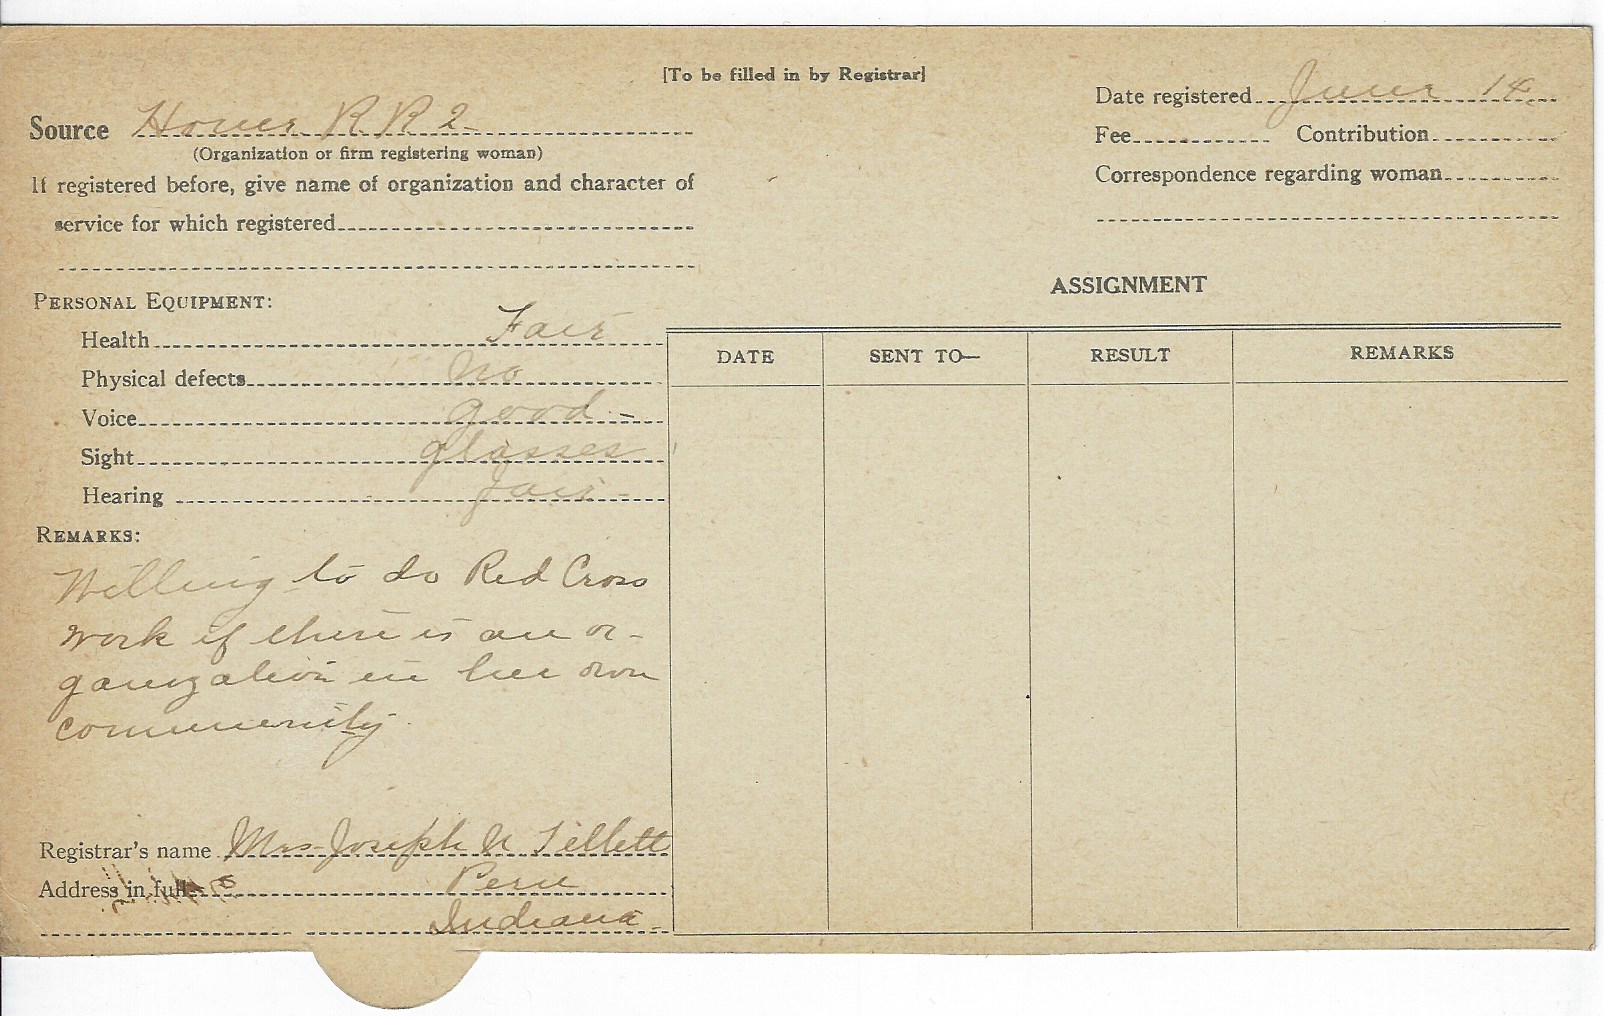 [To be filled in by Registrar]
Source Hover R R 2
(Organization or firm registering woman)
If registered before, give name of organization and character of
service for which registered
Date registered June 14
Fee Contribution
Correspondence regarding woman
PERSONAL EQUIPMENT:
Health Fair
Physical defects No
Voice good -
Sight glasses
Hearing fair -
REMARKS:
Willing to do Red Cross
work if there is an or-
ganization in her own
community.
Registrar's name Mrs Joseph N Tillett
Address in full Peru
Indiana
ASSIGNMENT
DATE SENT TO— RESULT REMARKS